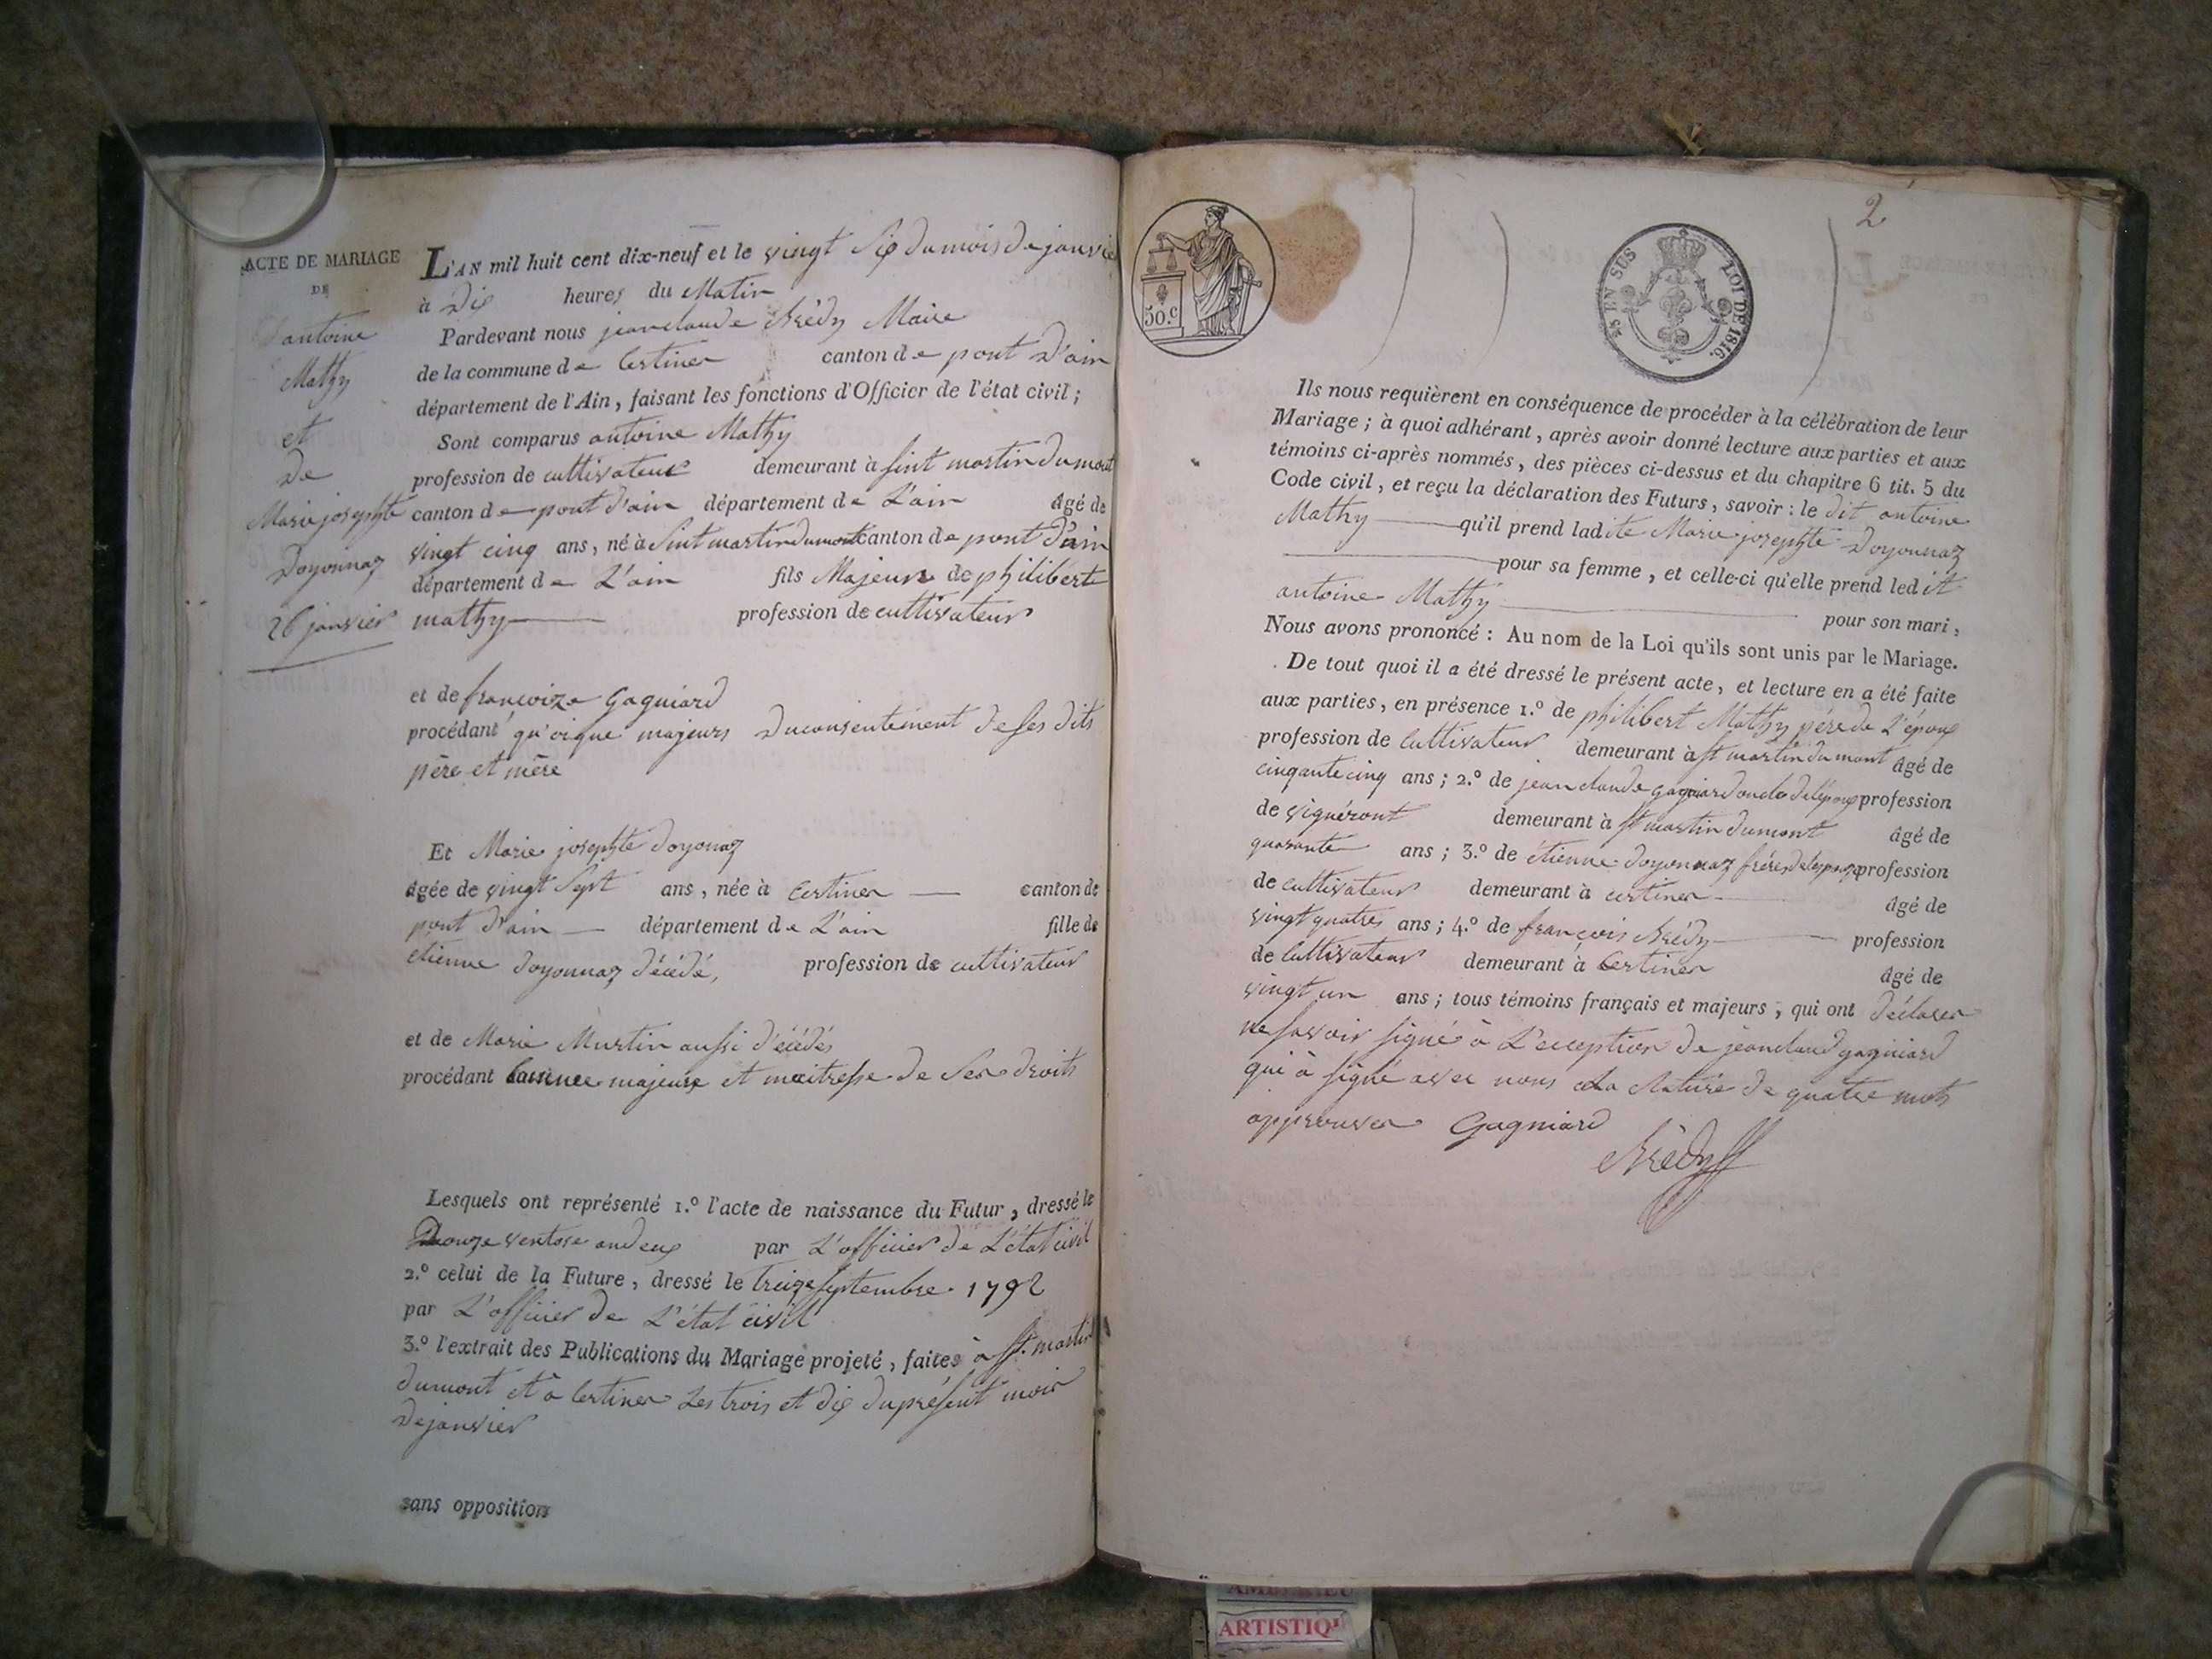 ACTE DE MARIAGE
DE
antoine
Mathy
et
De
Marie josephte
Doyonnaz
26 janvier
L'AN mil huit cent dix-neuf et le vingt Six du mois de janvier
à Dix heures du Matin
Pardevant nous jean claude Maire
de la commune de Certines canton de pont D'ain
département de l'Ain, faisant les fonctions d'Officier de l'état civil ;
Sont comparus antoine Mathy
profession de cultivateur demeurant à sint martin du mont
canton de pont d'ain département de L'ain âgé de
vingt cinq ans, né à Sint martin dumont canton de pont d'ain
département de L'ain fils Majeur de philiberte
mathy profession de cultivateur
et de francoize gagniard
procédant qu'oique majeurs Du consentement de ses dits
père et mère
Et Marie josephte doyonaz
âgée de vingt Sept ans, née à Certines canton de
pont d'ain département de L'ain fille de
étienne doyonnaz décédé, profession de cultivateur
et de Marie Murtin aussi d'écédés
procédant comme majeure et maitresse de Ses droits
Lesquels ont représenté 1.º l'acte de naissance du Futur, dressé le
ventose an deux par L'officier de L'état civil
2.º celui de la Future, dressé le treize septembre 1792
par L'officier de L'état civil
3.º l'extrait des Publications du Mariage projeté, faites à st. martin
dumont et à Certines Les trois et dix du présent mois
De janvier
sans opposition
2
50.c
EN SUS
LOI DE 1816.
Ils nous requièrent en conséquence de procéder à la célébration de leur
Mariage ; à quoi adhérant, après avoir donné lecture aux parties et aux
témoins ci-après nommés, des pièces ci-dessus et du chapitre 6 tit. 5 du
Code civil, et reçu la déclaration des Futurs, savoir : le dit antoine
Mathy qu'il prend ladite Marie josephte Doyonnaz
pour sa femme, et celle-ci qu'elle prend ledit
antoine Mathy pour son mari,
Nous avons prononcé : Au nom de la Loi qu'ils sont unis par le Mariage.
De tout quoi il a été dressé le présent acte, et lecture en a été faite
aux parties, en présence 1.º de philibert Mathy père de L'époux
profession de Cultivateur demeurant à st martin du mont âgé de
cinqante cinq ans ; 2.º de jean claude gagniard oncle de l'époux profession
de vigneront demeurant à st martin dumont âgé de
quarante ans ; 3.º de étienne doyonnaz frère profession
de cultivateur demeurant à certines âgé de
vingt quatres ans ; 4.º de françois profession
de Cultivateur demeurant à Certines âgé de
vingt un ans ; tous témoins français et majeurs, qui ont déclarer
ne savoir signé à L'exception de jean claud gagniard
qui à signé avec nous La Rature de quatre mots
approuver Gagniard